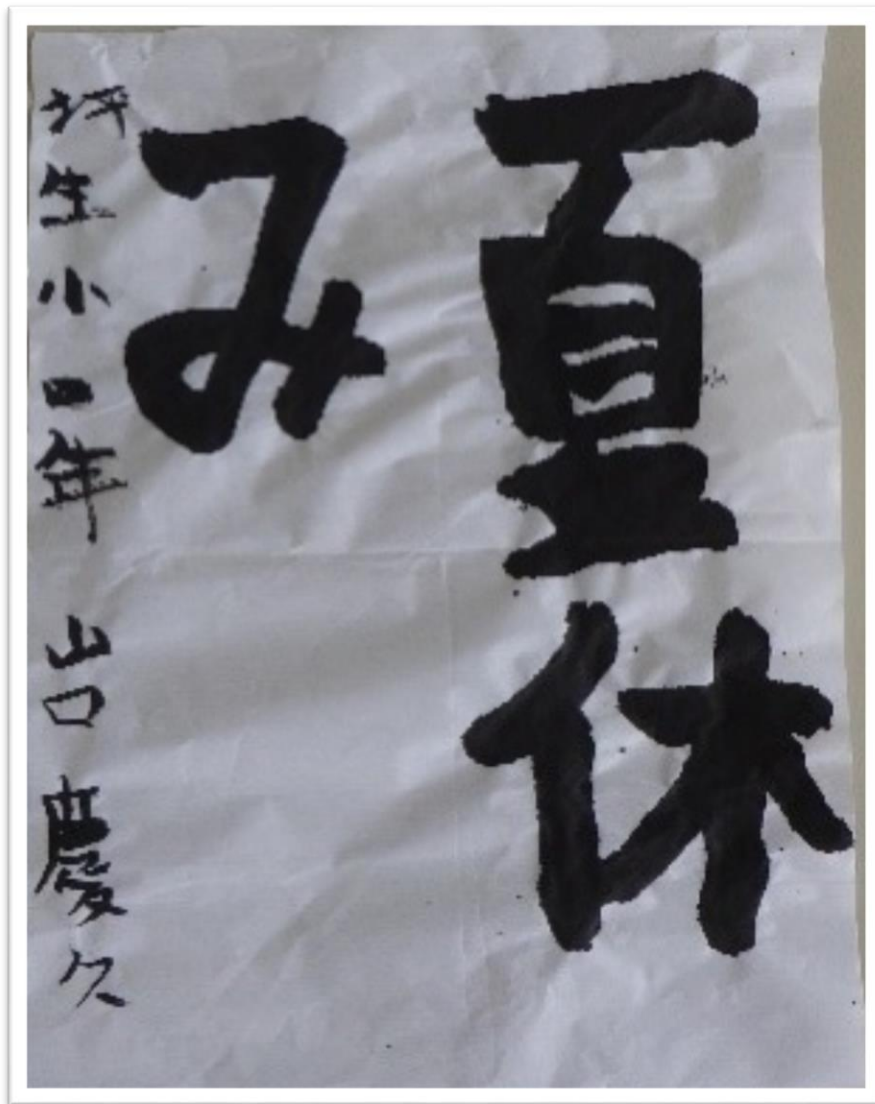 夏休
み
坪生小 年 山口慶久